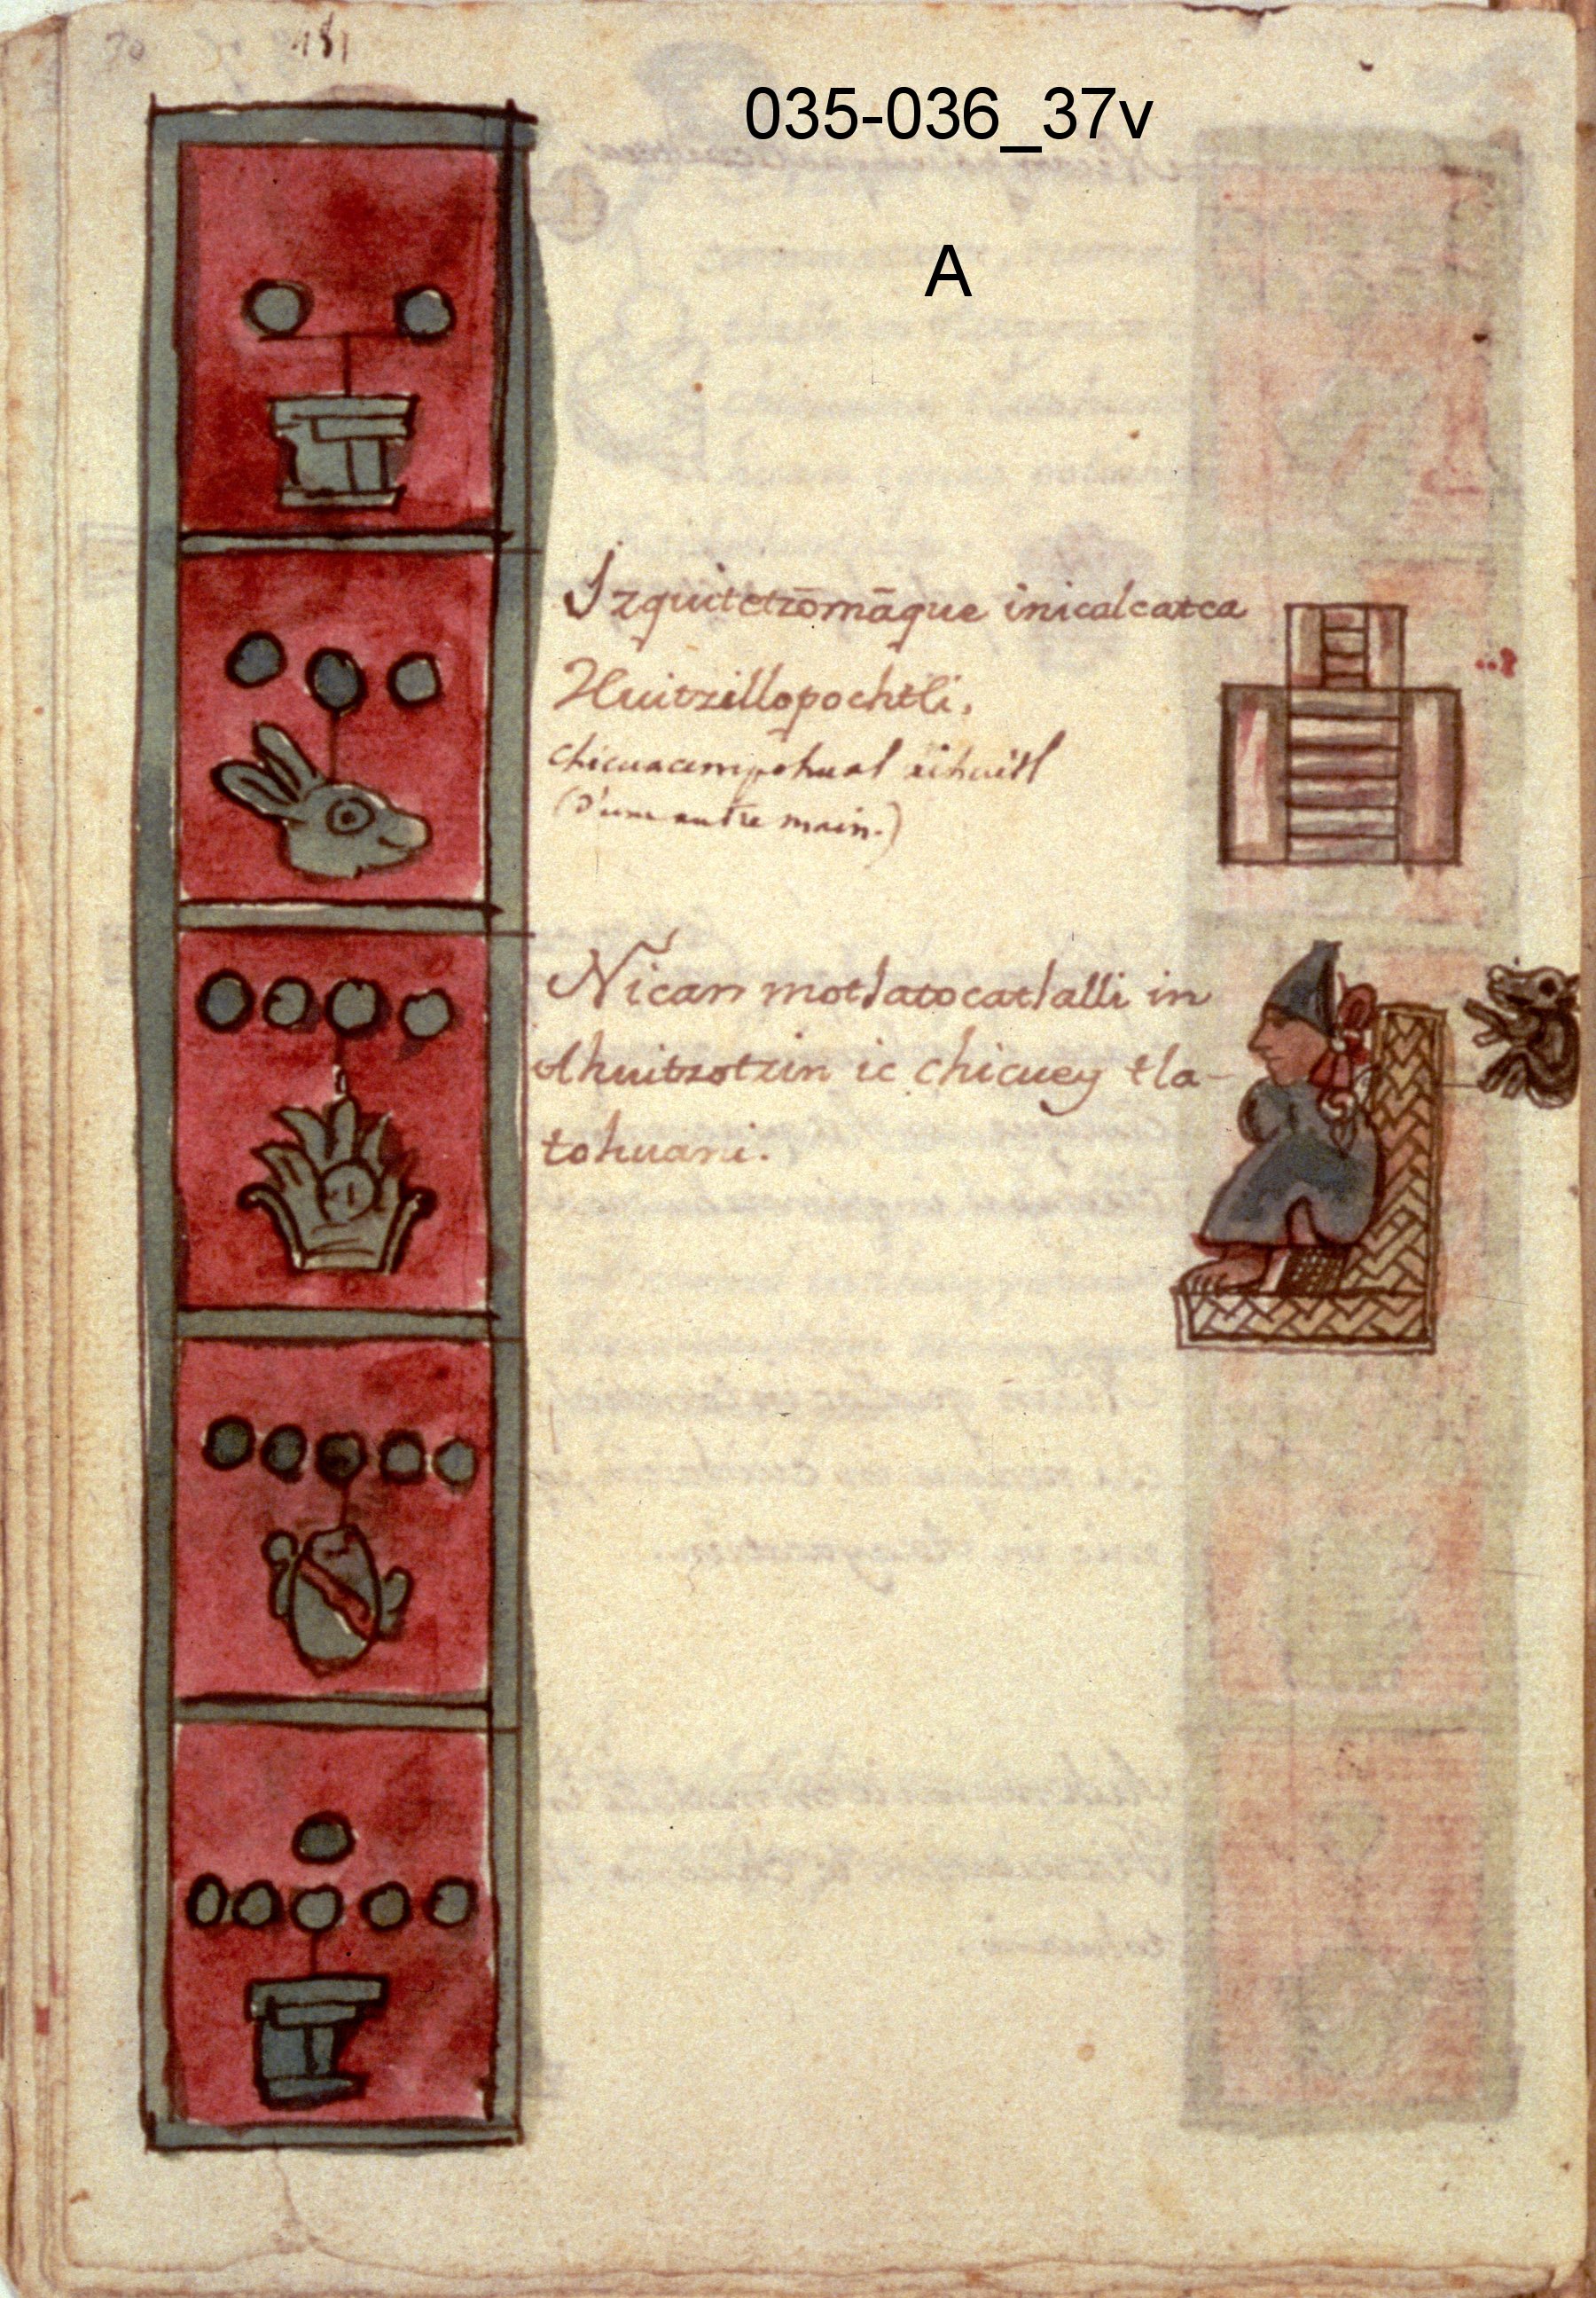 70 181
035-036_37v
A
Izquitetzōmāque inicalcatca
Huitzillopochtli.
chicuacempohual
(D'une autre main.)
Nican motlatocatlalli in
Ahuitzotzin ic chicuey tla-
tohuani.